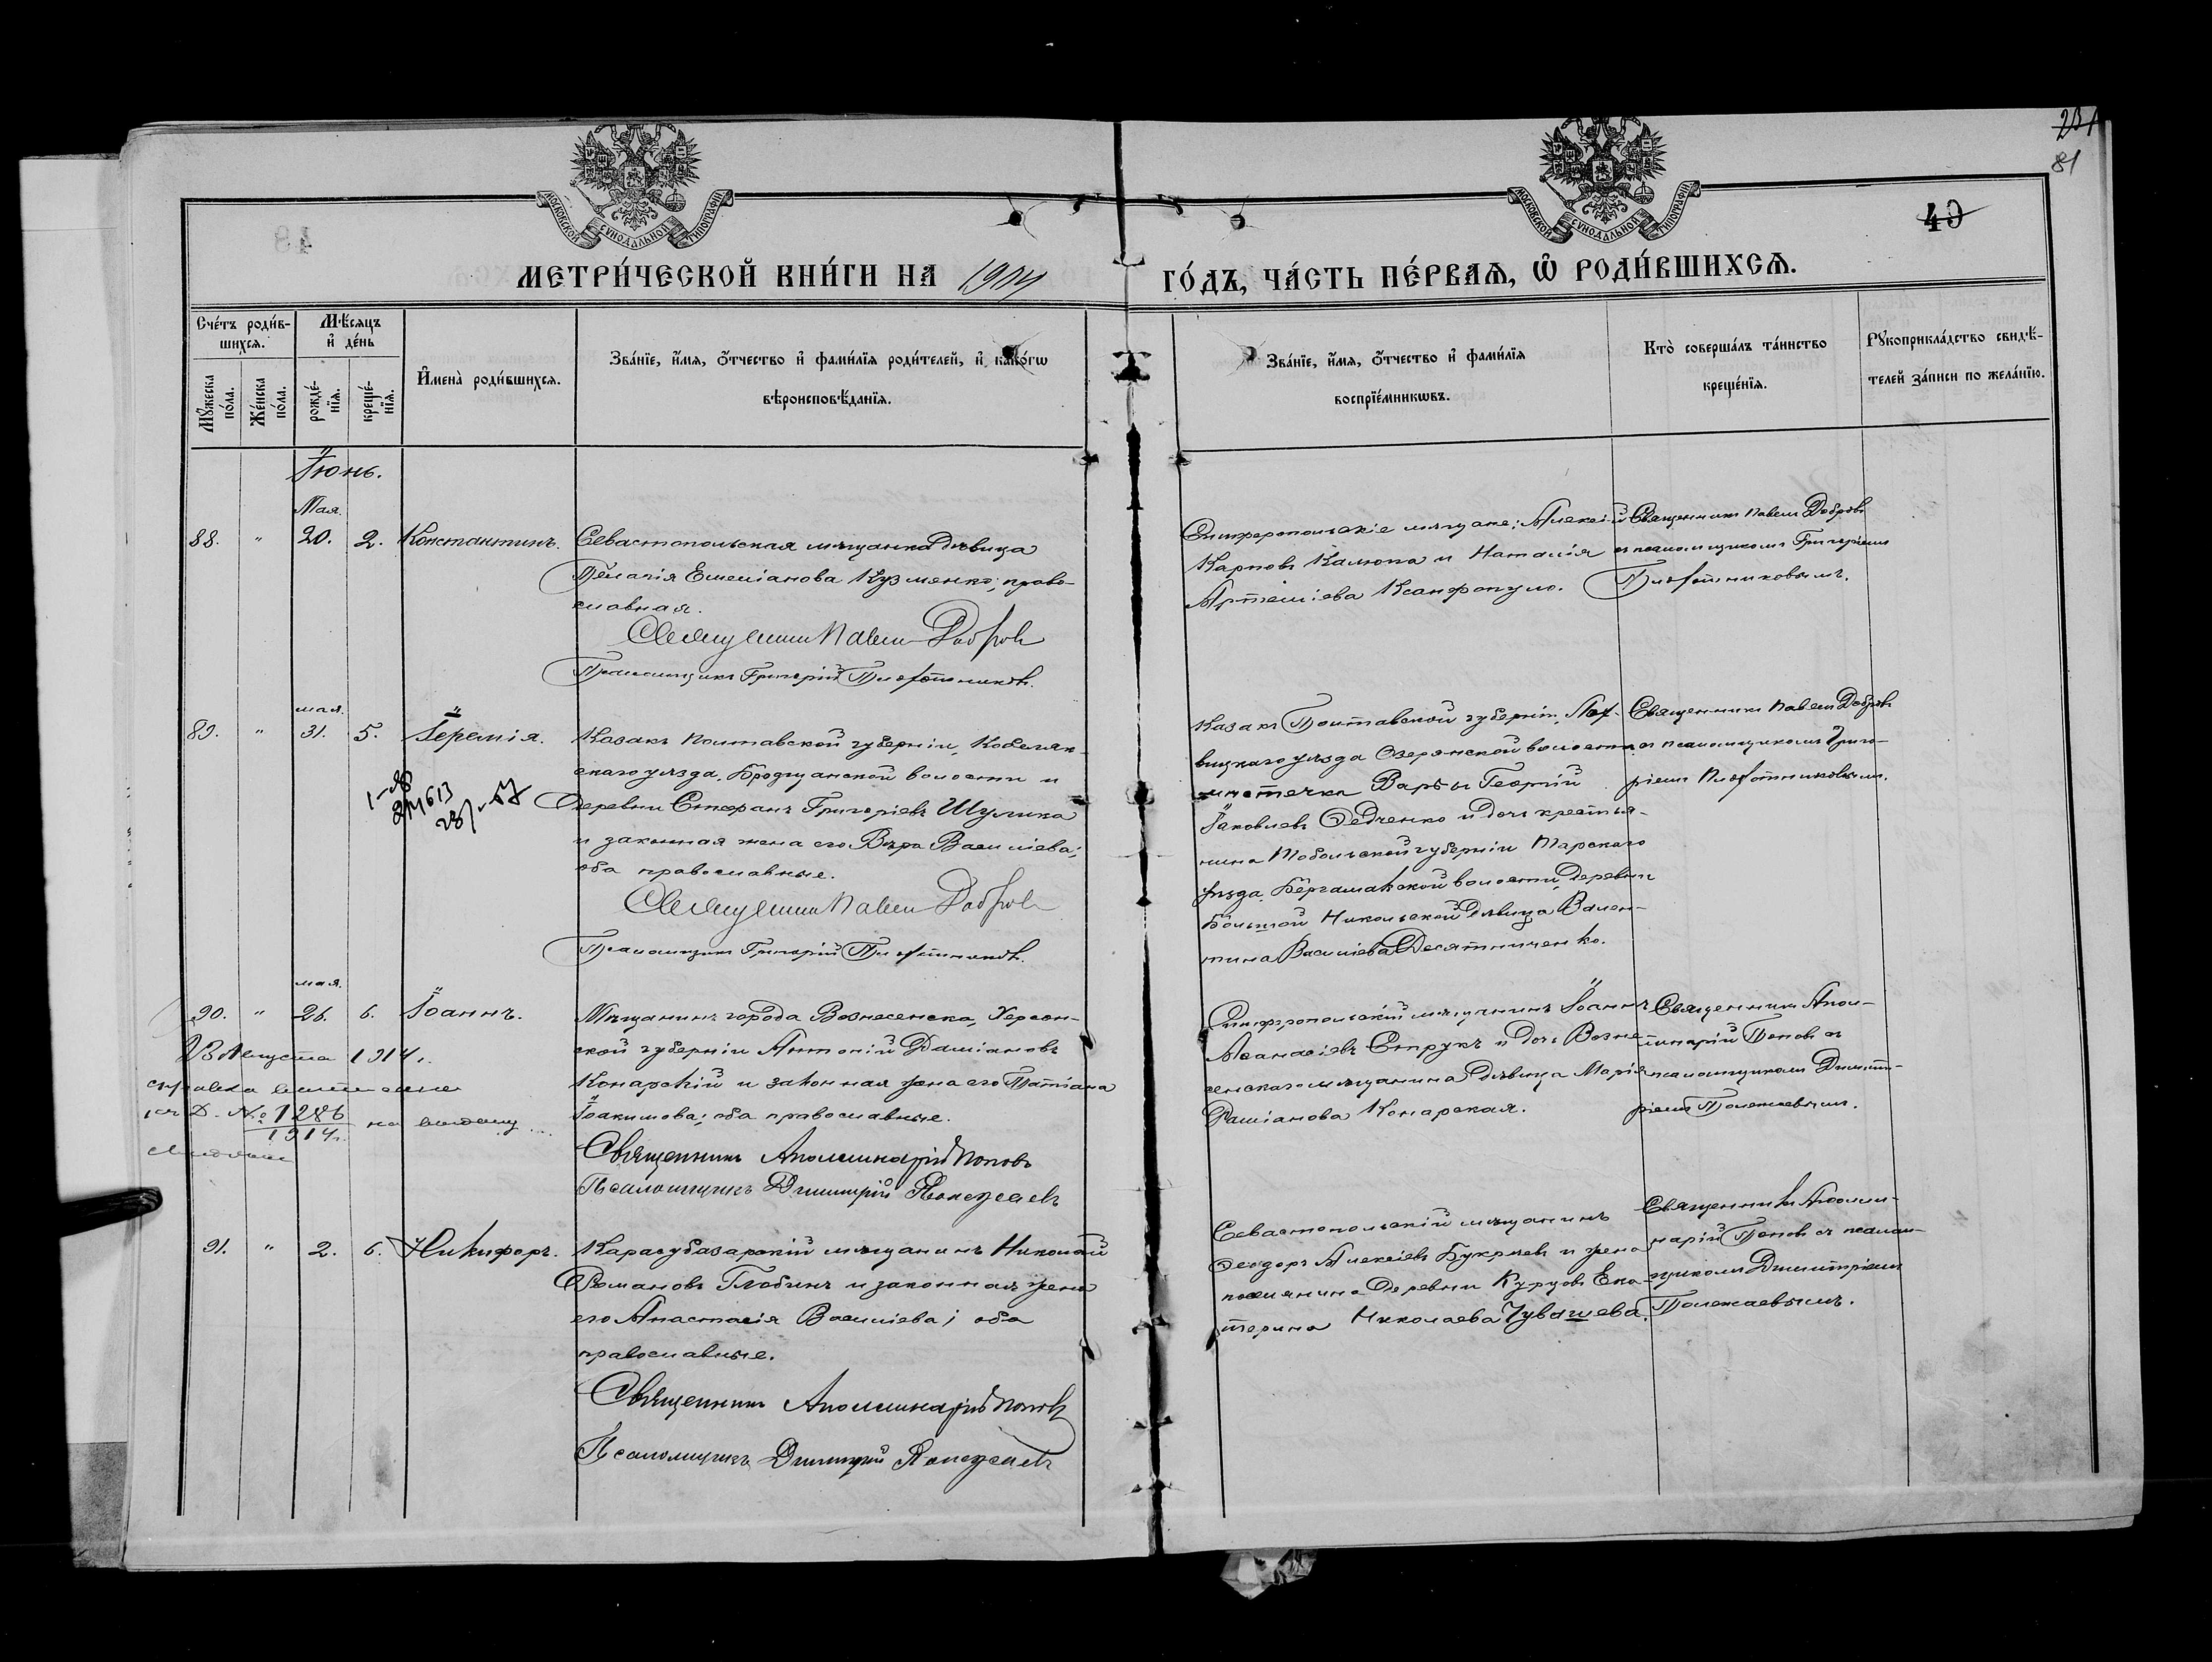 231
81
49
МОСКОВСКОЙ СѴНОДАЛЬНОЙ ТИПОГРАФІИ
МОСКОВСКОЙ СѴНОДАЛЬНОЙ ТИПОГРАФІИ
МЕТРИ́ЧЕСКОЙ КНИ́ГИ НА 1904
ГО́ДЪ, ЧА́СТЬ ПЕ́РВАѦ, Ѡ҆ РОДИ́ВШИХСѦ.
Сче́тъ роди́в-
шихсѧ.
Мѣ́сѧцъ
и҆ де́нь
Мꙋ́жеска по́ла.
Же́нска по́ла.
рожде́-
нїѧ.
креще́-
нїѧ.
И҆мена̀ роди́вшихсѧ.
Зва́нїе, и҆́мѧ, ѻ҆́тчество и҆ фами́лїѧ роди́телей, и҆ како́гѡ
вѣроисповѣ́данїѧ.
Зва́нїе, и҆́мѧ, ѻ҆́тчество и҆ фами́лїѧ
воспрїе́мникѡвъ.
Кто̀ соверша́лъ та́инство
креще́нїѧ.
Рꙋкоприкла́дство свидѣ́-
телей за́писи по жела́нїю.
Іюнь.
Мая.
88. " 20. 2. Константинъ.
Севастопольская мѣщанка дѣвица
Пелагія Емеліанова Кузменко; право-
славная.
Священникъ Павелъ Добровъ
Псаломщикъ Григорій Плотниковъ.
Симферопольскіе мѣщане: Алексѣй
Карповъ Калюпа и Наталія
Артеміева Ксанфопуло.
Священникъ Павелъ Добровъ
съ псаломщикомъ Григоріемъ
Плотниковымъ.
мая.
89. " 31. 5. Іеремія.
Казакъ Полтавской губерніи, Кобеляк-
скаго уѣзда, Бродщанской волости и
деревни Стефанъ Григоріевъ Шулика
и законная жена его Вѣра Василіева;
оба православные.
Священникъ Павелъ Добровъ
Псаломщикъ Григорій Плотниковъ.
Казакъ Полтавской губерніи, Лох-
вицкаго уѣзда Озерянской волости
мѣстечка Варвы Георгій
Іаковлевъ Дедченко и дочь крестья-
нина Тобольской губерніи Тарскаго
уѣзда, Бергамакской волости, деревни
Большой Никольской дѣвица Вален-
тина Василіева Десятниченко.
Священникъ Павелъ Добровъ
съ псаломщикомъ Григо-
ріемъ Плотниковымъ.
мая.
90. " 26. 6. Іоаннъ.
Мѣщанинъ города Вознесенска, Херсон-
ской губерніи Антоній Даміановъ
Конарскій и законная жена его Татіана
Іоакимова; оба православные.
Священникъ Аполлинарій Поповъ
Псаломщикъ Димитрій Полежаевъ
Августа 1914 г.
№ 1286
1914 г.
Симферопольскій мѣщанинъ Іоаннъ
Аѳанасіевъ Струкъ и дочь Возне-
сенскаго мѣщанина дѣвица Марія
Даміанова Конарская.
Священникъ Апол-
линарій Поповъ съ
псаломщикомъ Димит-
ріемъ Полежаевымъ.
91. " 2. 6. Никифоръ.
Карасубазарскій мѣщанинъ Николай
Романовъ Глобинъ и законная жена
его Анастасія Василіева; оба
православные.
Священникъ Аполлинарій Поповъ
Псаломщикъ Димитрій Полежаевъ
Севастопольскій мѣщанинъ
Ѳеодоръ Алексіевъ Букреевъ и жена
поселянина деревни Курцовъ Ека-
терина Николаева Чувашева.
Священникъ Аполли-
нарій Поповъ съ псалом-
щикомъ Димитріемъ
Полежаевымъ.